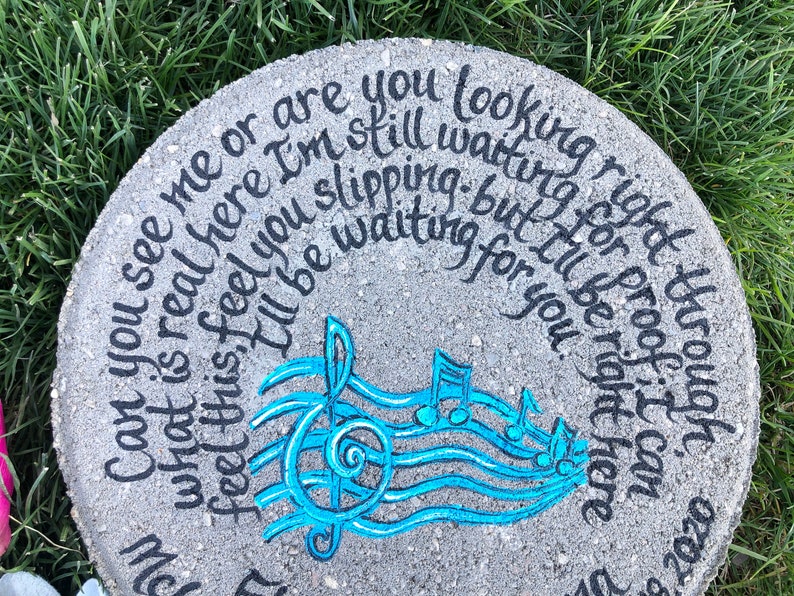 Can you see me or are you looking right through.
what is real here I'm still waiting for proof. I can
feel this, feel you slipping. but I'll be right here
I'll be waiting for you.
8 2020